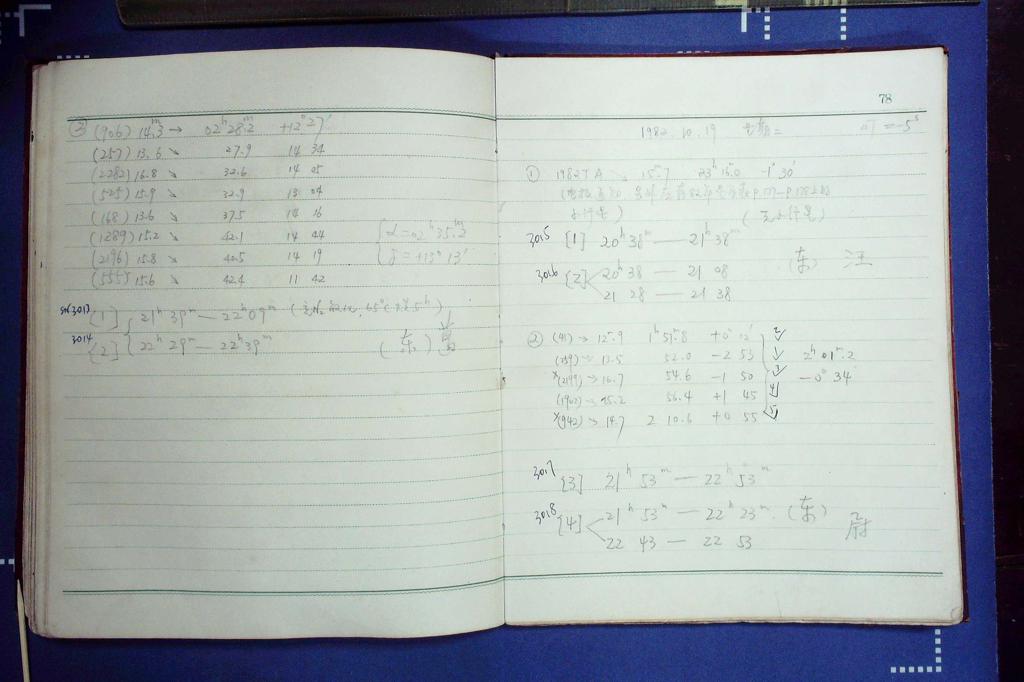 ③ (906) 14.3ᵐ → 02ʰ28ᵐ.2 +12°27′
(257) 13.6 ↘ 27.9 14 34
(2282) 16.8 ↘ 32.6 14 05
(525) 15.9 ↘ 32.9 13 04
(168) 13.6 ↘ 37.5 14 16
(1289) 15.2 ↘ 42.1 14 44
(2196) 15.8 ↘ 40.5 14 19
(555) 15.6 ↘ 42.4 11 42
α=02ʰ35ᵐ.2
δ=+13°13′
3013 [1] 21ʰ39ᵐ — 22ʰ09ᵐ
3014 [2] 22ʰ29ᵐ — 22ʰ39ᵐ (东)
78
1982.10.19 = -5ˢ
① 1982TA ↘ 15ᵐ.7 23ʰ16ᵐ.0 -1°30′
3015 [1] 20ʰ38ᵐ — 21ʰ38ᵐ
3016 [2] 20ʰ38 — 21 08 (东) 汪
21 28 — 21 38
② (41) → 12ᵐ.9 1ʰ51ᵐ.8 +0°12′ 2✓
(239) → 13.5 52.0 -2 53 1✓ 2ʰ01ᵐ.2
×(2199) → 16.7 54.6 -1 50 3✓ -0°34′
(1902) → 15.2 56.4 +1 45 4✓
×(942) ↘ 14.7 2 10.6 +0 55 5✓
3017 [3] 21ʰ53ᵐ — 22ʰ53ᵐ
3018 [4] 21ʰ53ᵐ — 22ʰ23ᵐ (东) 尉
22 43 — 22 53